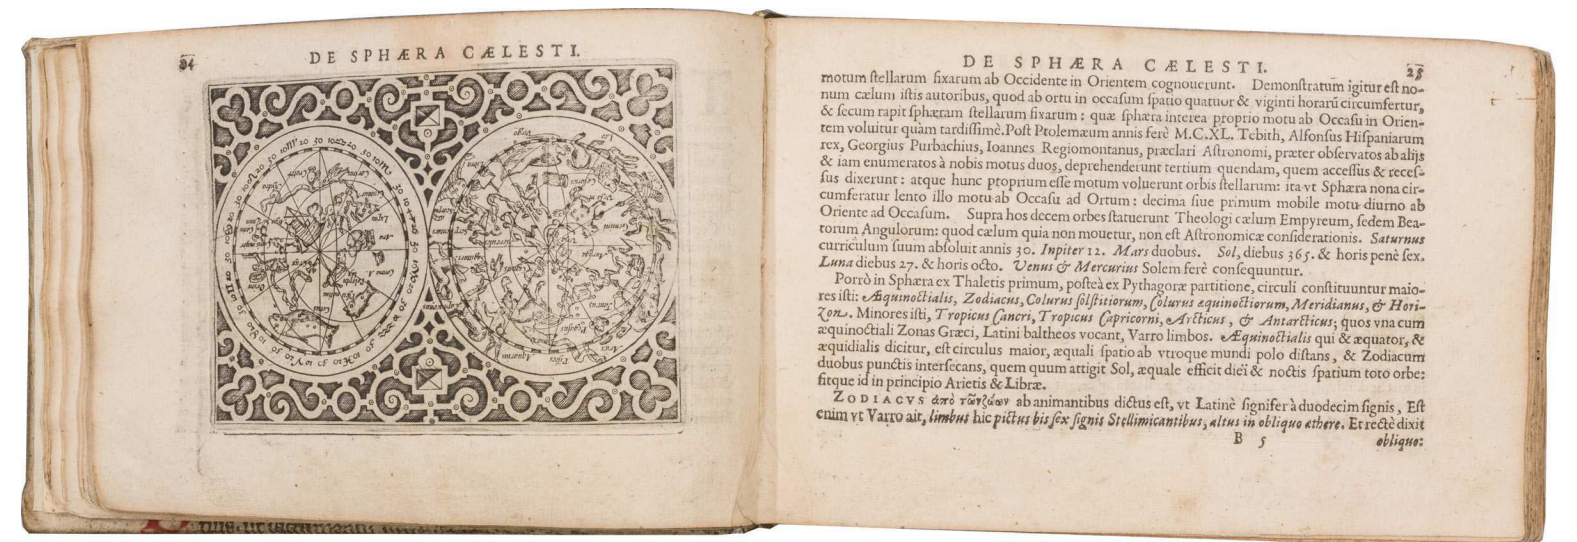 24
DE SPHÆRA CÆLESTI.
Virgo
Leo
Libra
Gemini
Auriga
Taurus
Pegasus
Aries
Pisces
Aquarius
Ara
Corona A.
Orion
Cetus
DE SPHÆRA CÆLESTI.
25
motum ſtellarum fixarum ab Occidente in Orientem cognouerunt. Demonſtratum igitur eſt no-
num cælum iſtis autoribus, quod ab ortu in occaſum ſpatio quatuor & viginti horarũ circumfertur,
& ſecum rapit ſphæram ſtellarum fixarum: quæ ſphæra interea proprio motu ab Occaſu in Orien-
tem voluitur quàm tardiſſimè. Poſt Ptolemæum annis ferè M.C.XL. Tebith, Alfonſus Hiſpaniarum
rex, Georgius Purbachius, Ioannes Regiomontanus, præclari Aſtronomi, præter obſervatos ab alijs
& iam enumeratos à nobis motus duos, deprehenderunt tertium quendam, quem acceſſus & receſ-
ſus dixerunt: atque hunc proprium eſſe motum voluerunt orbis ſtellarum: ita vt Sphæra nona cir-
cumferatur lento illo motu ab Occaſu ad Ortum: decima ſiue primum mobile motu diurno ab
Oriente ad Occaſum. Supra hos decem orbes ſtatuerunt Theologi cælum Empyreum, ſedem Bea-
torum Angulorum: quod cælum quia non mouetur, non eſt Aſtronomicæ conſiderationis. Saturnus
curriculum ſuum abſoluit annis 30. Iupiter 12. Mars duobus. Sol, diebus 365. & horis penè ſex.
Luna diebus 27. & horis octo. Venus & Mercurius Solem ferè conſequuntur.
Porrò in Sphæra ex Thaletis primum, poſteà ex Pythagoræ partitione, circuli conſtituuntur maio-
res iſti: Æquinoctialis, Zodiacus, Colurus ſolſtitiorum, Colurus æquinoctiorum, Meridianus, & Hori-
zon. Minores iſti, Tropicus Cancri, Tropicus Capricorni, Arcticus, & Antarcticus; quos vna cum
æquinoctiali Zonas Græci, Latini baltheos vocant, Varro limbos. Æquinoctialis qui & æquator, &
æquidialis dicitur, eſt circulus maior, æquali ſpatio ab vtroque mundi polo diſtans, & Zodiacum
duobus punctis interſecans, quem quum attigit Sol, æquale efficit diei & noctis ſpatium toto orbe:
fitque id in principio Arietis & Libræ.
ZODIACVS ἀπὸ τῶν ζώων ab animantibus dictus eſt, vt Latinè ſignifer à duodecim ſignis, Eſt
enim vt Varro ait, limbus hic pictus bis ſex ſignis Stellimicantibus, altus in obliquo æthere. Et rectè dixit
B 5
obliquo: